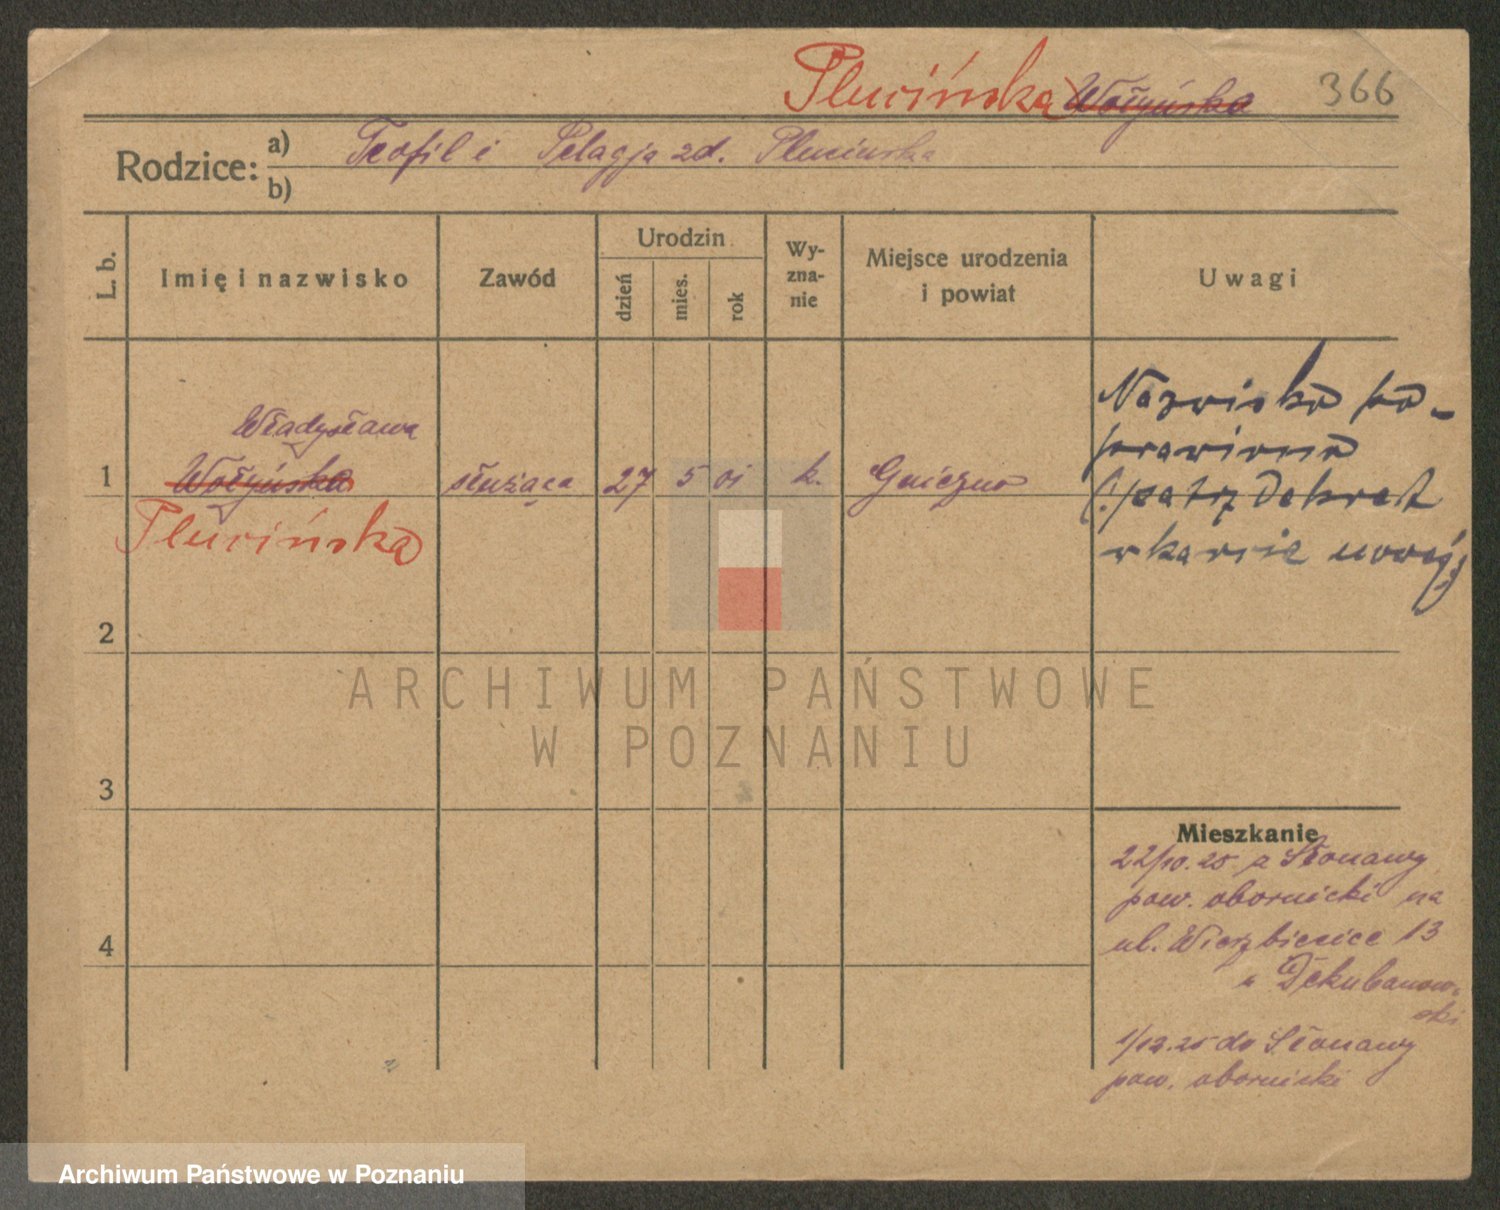 Plucińska Wołyńska 366
Rodzice: a) Teofil i Pelagja zd. Plucinska
b)
L. b.
Imię i nazwisko
Zawód
Urodzin
dzień
mies.
rok
Wy-
zna-
nie
Miejsce urodzenia
i powiat
Uwagi
Władysława
1 Wołyńska służąca 27 5 01 k. Gniezno
Plucińska
Nazwisko po-
prawiono
(: patrz dekret
w karcie
2
3
4
Mieszkanie
22/10.25 z Słonawy
pow. obornicki na
ul. Wierzbięcice 13
u
ski
1/12.25 do Słonawy
pow. obornicki
ARCHIWUM PAŃSTWOWE
W POZNANIU
Archiwum Państwowe w Poznaniu